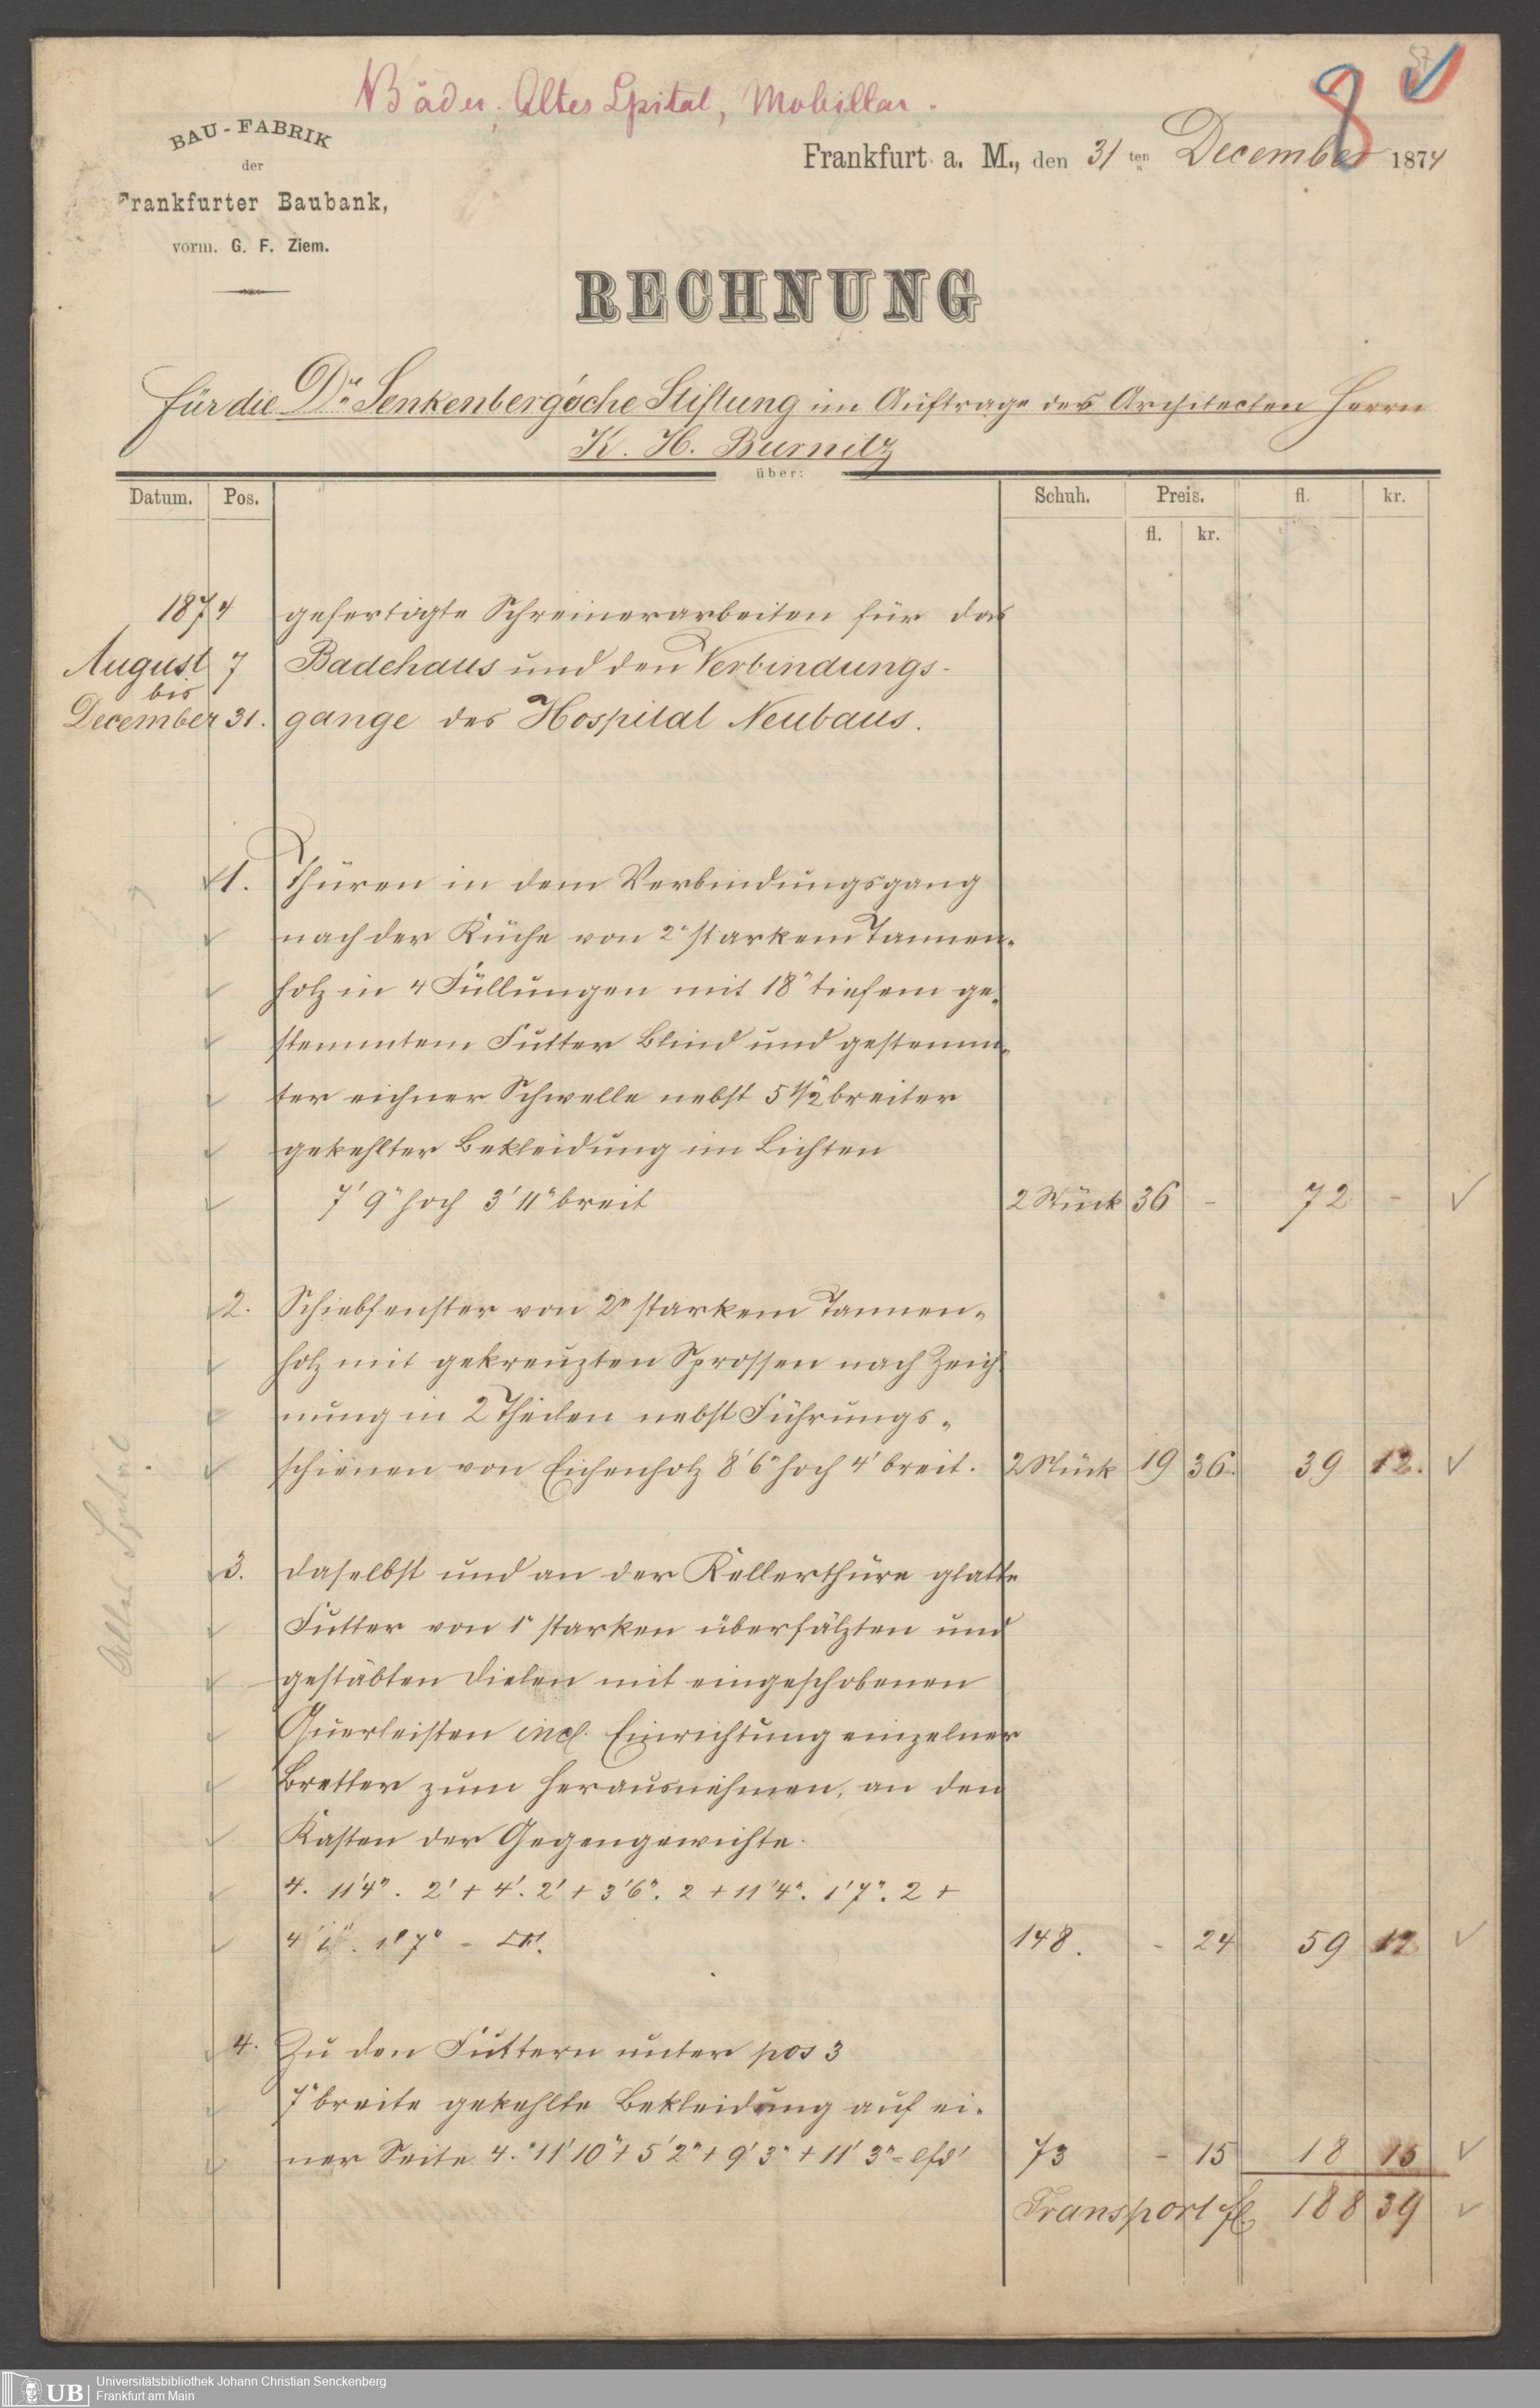 57
8
Bäder, Altes Spital, Mobillar.
BAU-FABRIK
der
Frankfurter Baubank,
vorm. G. F. Ziem.
Frankfurt a. M., den 31ten December 1874
RECHNUNG
für die Dr. Senkenberg'sche Stiftung im Auftrage des Architecten Herrn
K. H. Burnitz
über:
Datum. Pos. Schuh. Preis. fl. kr.
fl. kr.
1874 gefertigte Schreinerarbeiten für das
August 7 Badehaus und den Verbindungs-
bis
December 31. gange des Hospital Neubaus.
1. Thüren in dem Verbindungsgang
nach der Küche von 2" starkem Tannen-
holz in 4 Füllungen mit 18" tiefem ge-
stemmtem Futter Blind und gestemm-
ter eichner Schwelle nebst 5 1/2" breiter
gekehlter Bekleidung im Lichten
7' 9" hoch 3' 11" breit 2 Stück 36 - 72 -
2. Schiebfenster von 2" starkem Tannen-
holz mit gekreuzten Sprossen nach Zeich
nung in 2 Theilen nebst Führungs-
schienen von Eichenholz 8' 6" hoch 4' breit. 2 Stück 19 36. 39 12.
3. daselbst und an der Kellerthüre glatte
Futter von 1" starken überfälzten und
gestäbten Dielen mit eingeschobenen
Querleisten incl. Einrichtung einzelner
Bretter zum herausnehmen, an den
Kasten der Gegengewichte.
4. 11'4". 2' + 4'. 2' + 3'6". 2 + 11'4". 1'7". 2 +
4' 1". 1' 7" - 148. - 24 59 12
4. Zu den Futtern unter pos 3
7" breite gekehlte Bekleidung auf ei-
ner Seite 4. 11' 10" + 5' 2" + 9' 3" + 11' 3" = lfd' 73 - 15 18 15
Transport fl. 188 39
Altes Spital
UB
Universitätsbibliothek Johann Christian Senckenberg
Frankfurt am Main